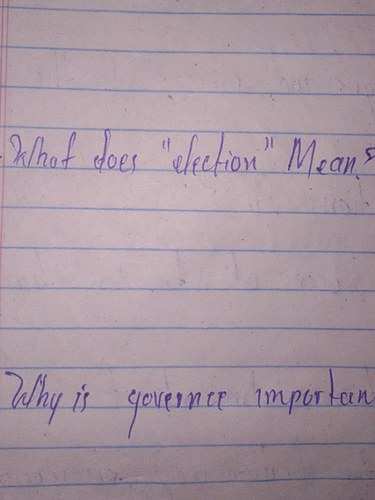 What does "election" Mean?
Why is governce importan